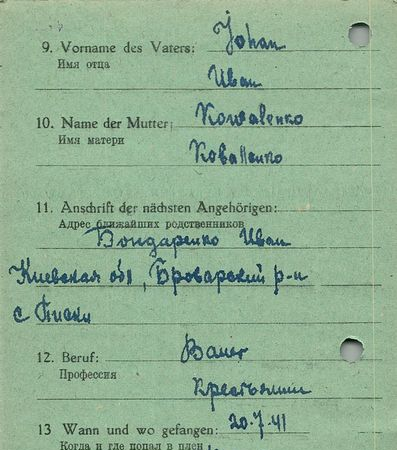 9. Vorname des Vaters: Johan
Имя отца
Иван
10. Name der Mutter: Kowalenko
Имя матери
Коваленко
11. Anschrift der nächsten Angehörigen:
Адрес ближайших родственников
Бондаренко Иван
Киевская обл, Броварский р-н
с Писки
12. Beruf: Bauer
Профессия
Крестьянин
13 Wann und wo gefangen: 20.7.41
Когда и где попал в плен